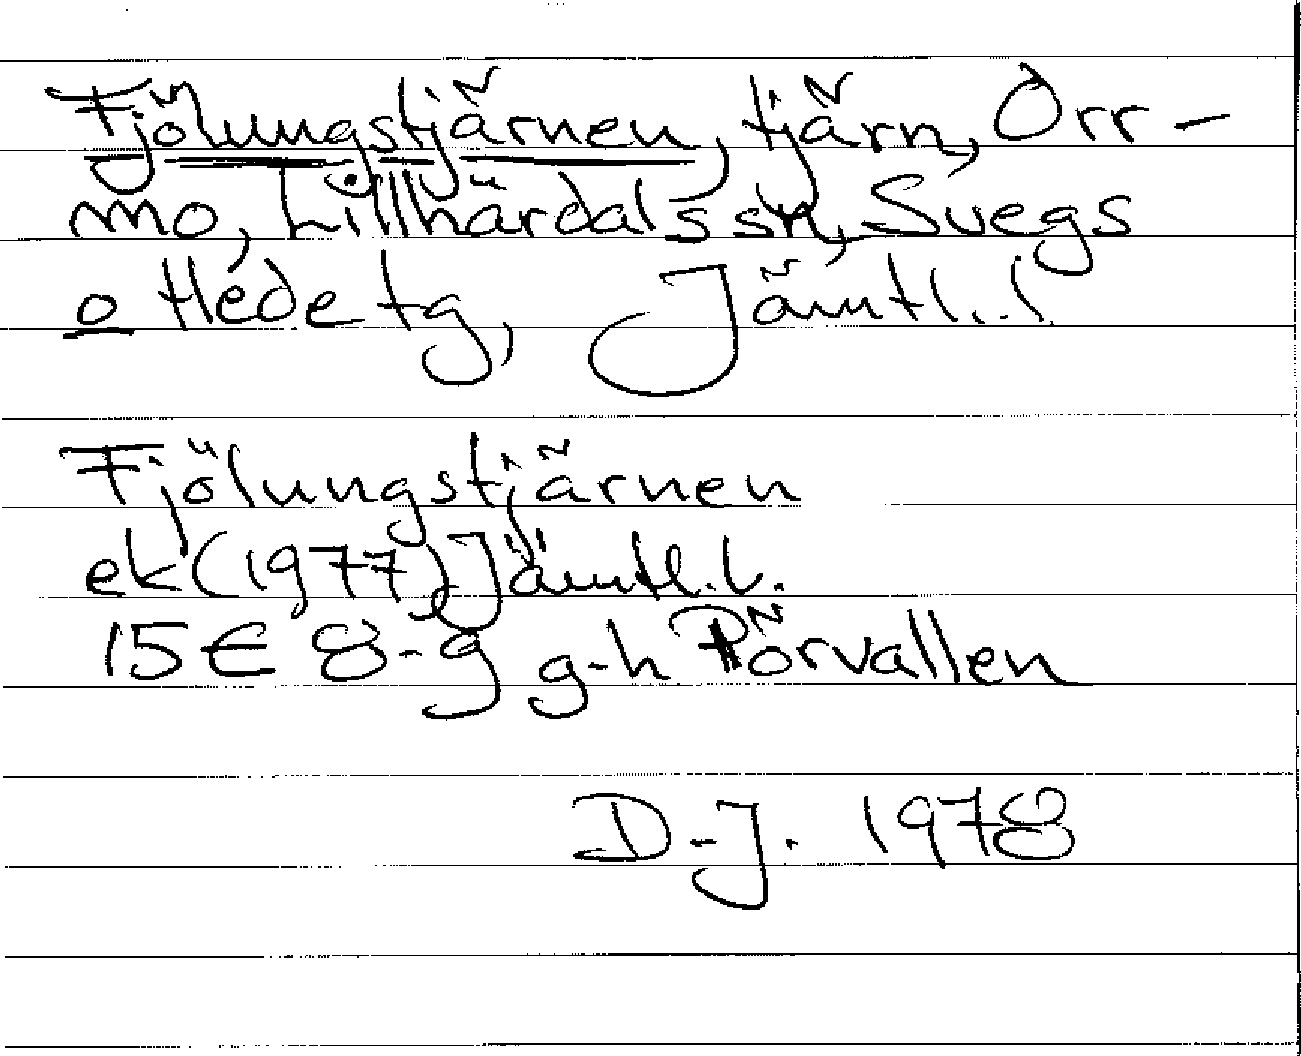 Fjölungstjärnen, tjärn, Orr-
mo, Lillhärdals sn, Svegs
o Hede tg, Jämtl. l.
Fjölungstjärnen
ek (1977) Jämtl. l.
15E 8-9 g-h Pörvallen
D-J. 1978